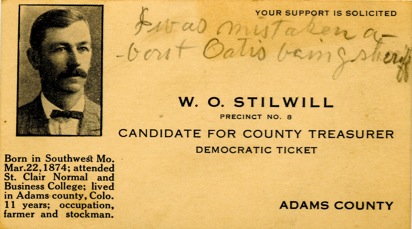 YOUR SUPPORT IS SOLICITED
I was mistaken a-
-bout Oatis being sheriff
W. O. STILWILL
PRECINCT NO. 8
CANDIDATE FOR COUNTY TREASURER
DEMOCRATIC TICKET
Born in Southwest Mo.
Mar. 22, 1874; attended
St. Clair Normal and
Business College; lived
in Adams county, Colo.
11 years; occupation,
farmer and stockman.
ADAMS COUNTY